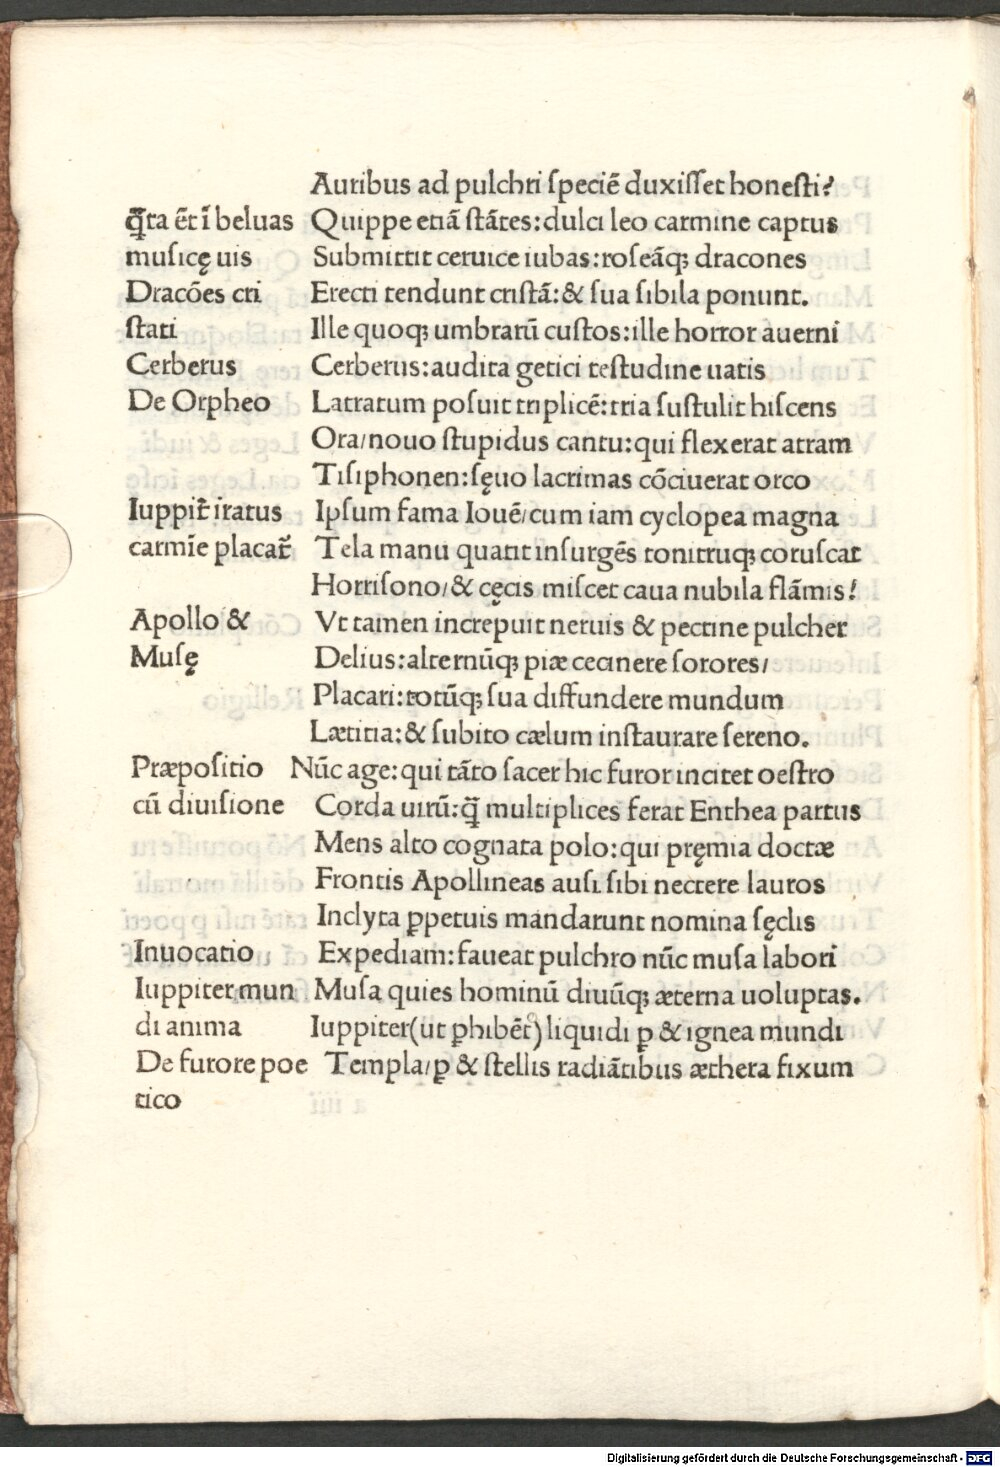 Auribus ad pulchri ſpeciē duxiſſet honeſti?
q̄ta ēt ī beluas Quippe etiā ſtātes: dulci leo carmine captus
muſicę uis Submittit ceruice iubas: roſeāq; dracones
Dracōes cri Erecti tendunt criſtā: & ſua ſibila ponunt.
ſtati Ille quoq; umbrarū cuſtos: ille horror auerni
Cerberus Cerberus: audita getici teſtudine uatis
De Orpheo Latratum poſuit triplicē: tria ſuſtulit hiſcens
Ora/nouo ſtupidus cantu: qui flexerat atram
Tiſiphonen: ſęuo lacrimas cōciuerat orco
Iuppit̄ iratus Ipſum fama Iouē/cum iam cyclopea magna
carmīe placat̄ Tela manu quatit inſurgēs tonitruq; coruſcat
Horriſono/& cęcis miſcet caua nubila flāmis!
Apollo & Vt tamen increpuit neruis & pectine pulcher
Muſę Delius: alternūq; piæ cecinere ſorores/
Placari: totūq; ſua diffundere mundum
Lætitia: & ſubito cælum inſtaurare ſereno.
Præpoſitio Nūc age: qui tāto ſacer hic furor incitet oeſtro
cū diuiſione Corda uirū: q̄ multiplices ferat Enthea partus
Mens alto cognata polo: qui pręmia doctæ
Frontis Apollineas auſi ſibi nectere lauros
Inclyta ꝑpetuis mandarunt nomina ſęclis
Inuocatio Expediam: faueat pulchro nūc muſa labori
Iuppiter mun Muſa quies hominū diuūq; æterna uoluptas.
di anima Iuppiter(ut ꝑhibēt) liquidi ꝑ & ignea mundi
De furore poe Templa/ꝑ & ſtellis radiātibus æthera fixum
tico
Digitalisierung gefördert durch die Deutsche Forschungsgemeinschaft - DFG